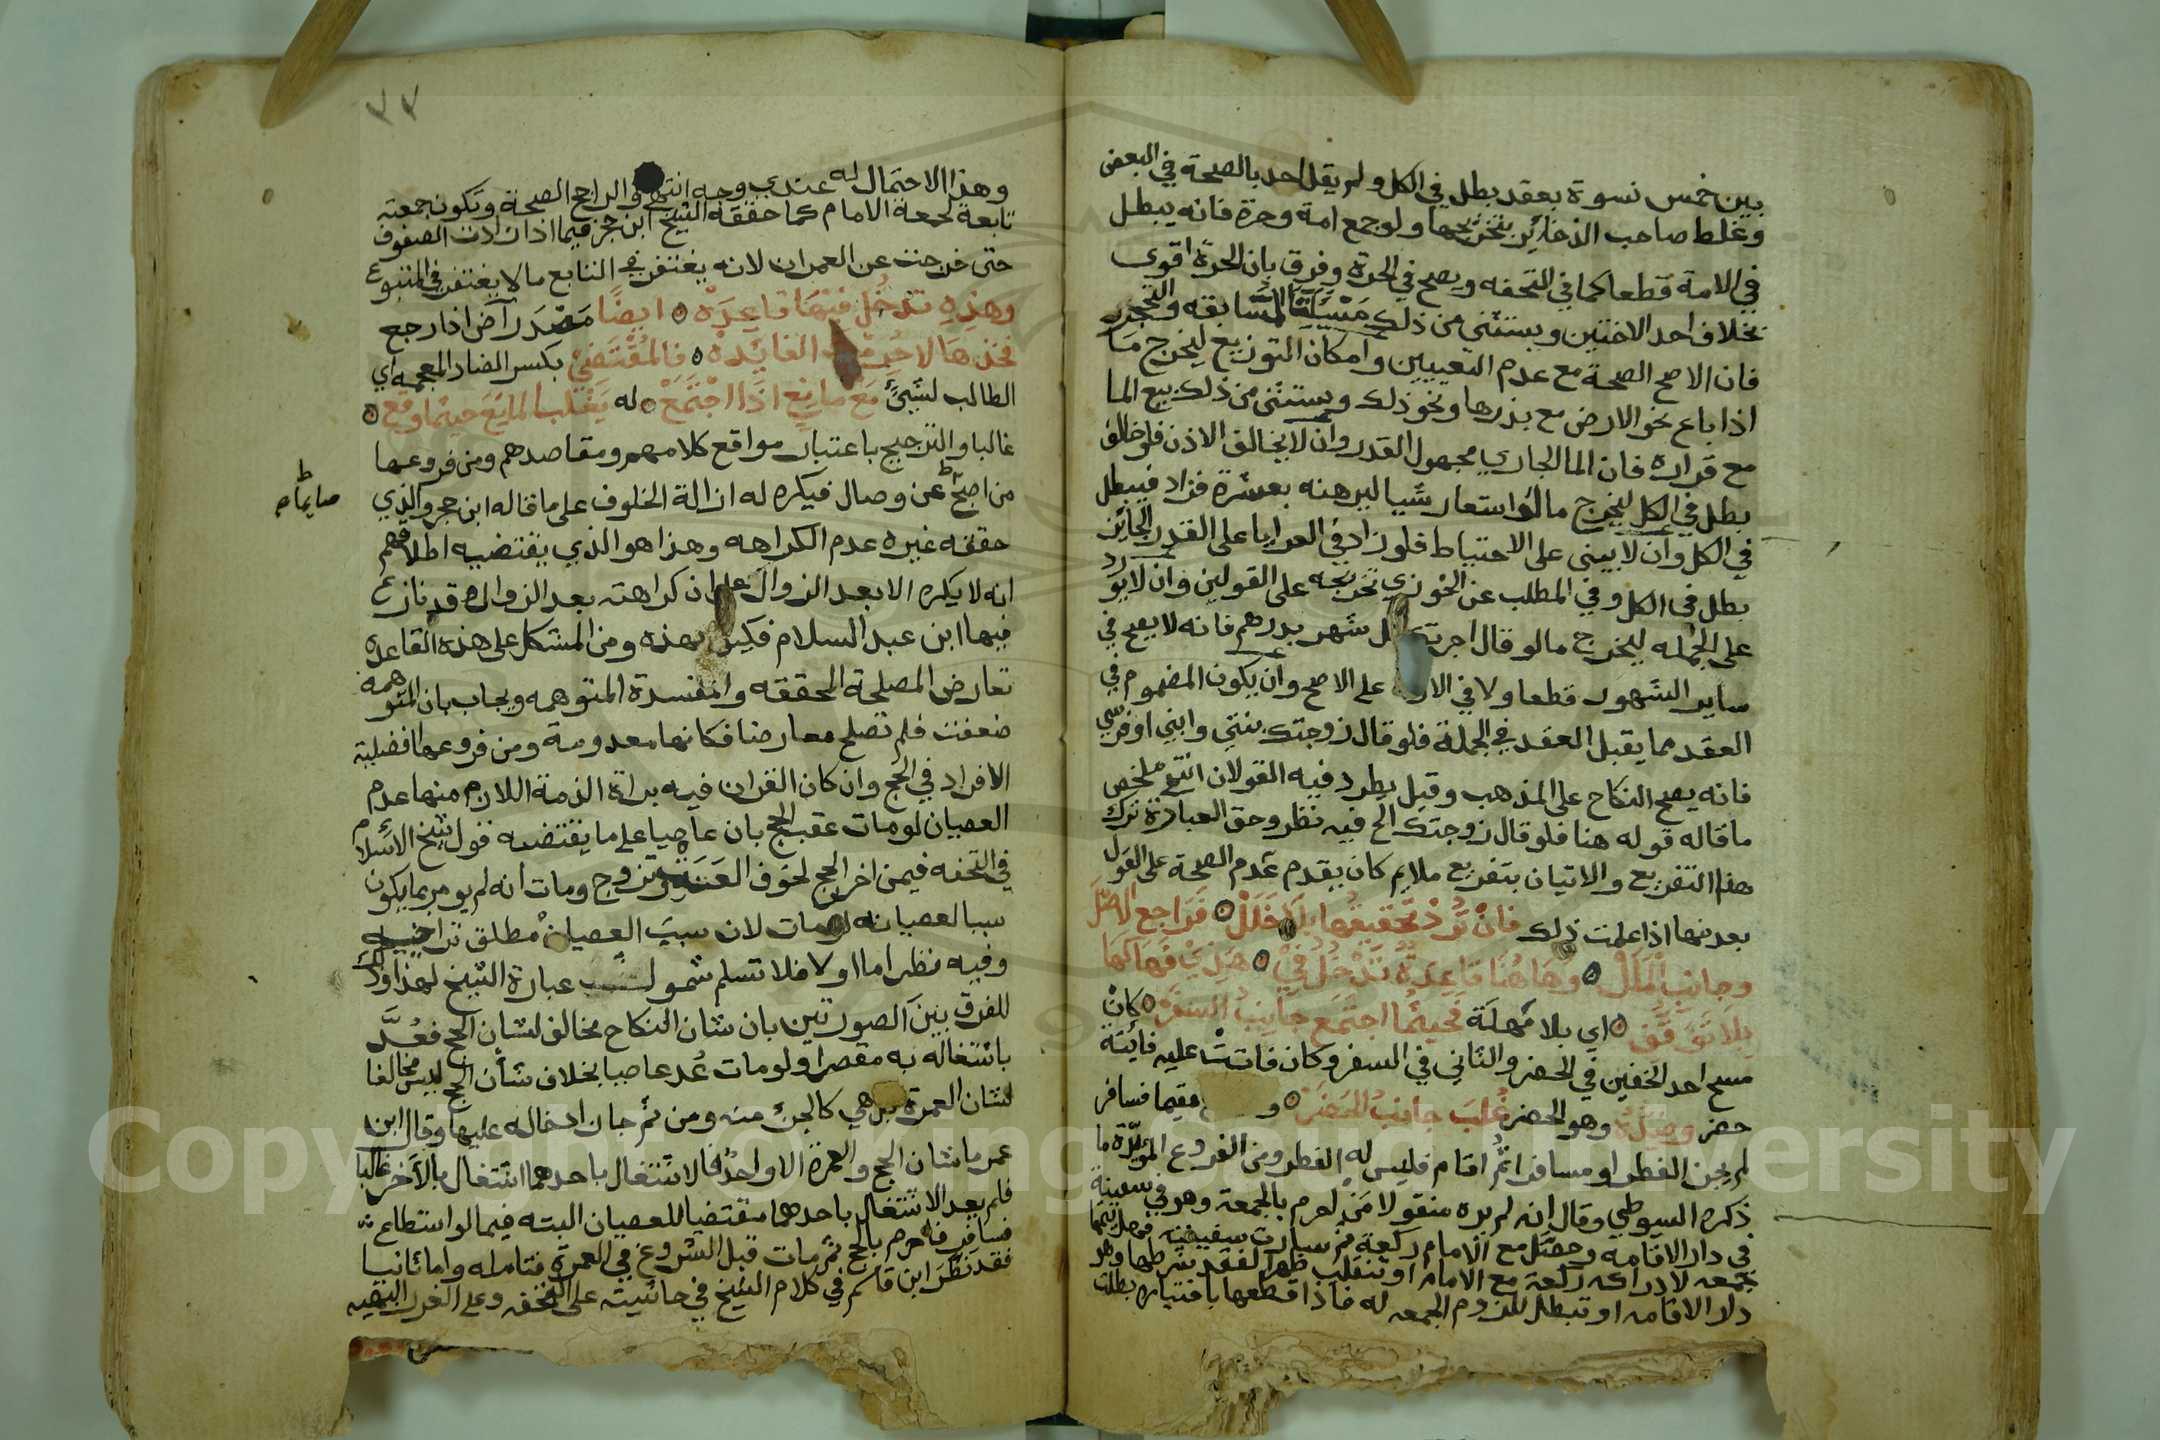 بين خمس نسوة بعقد بطل في الكل ولم يقل احد بالصحة في البعض
وغلط صاحب الذخائر بتخريجها ولو جمع امة وحرة فانه يبطل
في الامة قطعا كما في التحفه ويصح في الحرة وفرق بان الحرة اقوى
بخلاف احد الاختين ويستثني من ذلك مسيلة المسابقه والتحجر
فان الاصح الصحة مع عدم التعييين وامكان التوزيع ليخرج ما
اذا باع نحو الارض مع بذرها ونحو ذلك ويستثنى من ذلك بيع الما
مع قراره فان الما الجاري مجهول القدر وان لا يخالف الاذن فلو خالف
بطل في الكل ليخرج ما لو استعار شيا ليرهنه بعشرة فزاد فيبطل
في الكل وان لا يبنى على الاحتياط فلو زاد في العرايا على القدر الجائز
بطل في الكل وفي المطلب عن الخوزي تخريجه على القولين وان لا يورد
على الجمله ليخرج ما لو قال اجرتك كل شهر بدرهم فانه لا يصح في
ساير الشهور قطعا ولا في الاول على الاصح وان يكون المضموم في
العقد مما يقبل العقد في الجملة فلو قال زوجتك بنتي وابني او فرسي
فانه يصح النكاح على المذهب وقيل يطرد فيه القولان انتهى ملخص
ما قاله قوله هنا فلو قال زوجتك الخ فيه نظر وحق العبارة ترك
هذا التفريع والاتيان بتفريع ملايم كان يقدم عدم الصحة على القول
بعد منها اذا علمت ذلك فان ترد تحقيقها بلا خلل فراجع الاصل
وجانب الملل وهاهنا قاعدة تدخل في هذي فهاكها
بلا توقف اي بلا مهلة فحيثما اجتمع جانب السفر كان
مسح احد الخفين في الحضر والثاني في السفر وكان فاتت عليه فايتة
حضر وضده وهو الحضر غلب جانب للحضر و مقيما فسافر
لم يجز الفطر او مسافرا ثم اقام فليس له الفطر ومن الفروع المؤيدة ما
ذكره السيوطي وقال انه لم يره منقولا من احرم بالجمعة وهو في سفينة
في دار الاقامه وحصل مع الامام ركعة ثم سارت سفينته فهل يتمها
جمعه لادراكه ركعة مع الامام او تنقلب ظهرا لفقد شرطها وهو
دار الاقامه او تبطل للزوم الجمعه له فاذا قطعها باختياره بطلت
وهذا الاحتمال له عندي وجه انتهى والراجح الصحة وتكون جمعته
تابعة لجمعة الامام كما حققه الشيخ ابن حجر فيما اذا زادت الصفوف
حتى خرجت عن العمران لانه يغتفر في التابع ما لا يغتفر في المتبوع
وهذه تدخل فيها قاعدة ايضا مصدر آض اذا رجع
فخذها لا حرمت الفايده فالمقتضي بكسر الضاد المعجمه اي
الطالب لشيئ مع مانع اذا اجتمع له يغلب المانع حيثما وقع
غالبا والترجيح باعتبار مواقع كلامهم ومقاصدهم ومن فروعها
من اصبح عن وصال فيكره له ازالة الخلوف على ما قاله ابن حجر والذي
صايما صح
حققه غيره عدم الكراهه وهذا هو الذي يقتضيه اطلاقهم
انه لا يكره الا بعد الزوال على ان كراهته بعد الزوال قد نازع
فيها ابن عبد السلام فكيف بهذه ومن المشكل على هذه القاعدة
تعارض المصلحة المحققه والمفسدة المتوهمه ويجاب بان المتوهمة
ضعفت فلم تصلح معارضا فكانها معدومة ومن فروعها افضلية
الافراد في الحج وان كان القران فيه براة الذمة اللازم منها عدم
العصيان لو مات عقب الحج بان عاصيا على ما يقتضيه قول شيخ الاسلام
في التحفه فيمن اخر الحج لخوف العنت وتزوج ومات انه لم يومر بما يكون
سببا لعصيانه لو مات لان سبب العصيان مطلق تراخيه
وفيه نظر اما اولا فلا نسلم شمول عبارة الشيخ لهذا وذلك
للفرق بين الصورتين بان شان النكاح مخالف لشان الحج فعد
باشتغاله به مقصرا ولو مات عد عاصيا بخلاف شأن الحج ليس مخالفا
لشان العمرة بل هي كالجزء منه ومن ثم جاز ادخاله عليها وقال ابن
عمر ما شان الحج والعمرة الا واحد فالاشتغال باحدهما اشتغال بالآخر غالبا
فلم يعد الاشتغال باحدهما مقتضيا للعصيان البته فيما لو استطاع ثم
سافر فاحرم بالحج ثم مات قبل الشروع في العمرة فتامله واما ثانيا
فقد نظر ابن قاسم في كلام الشيخ في حاشيته على التحفه وعلى الغرر البهيه